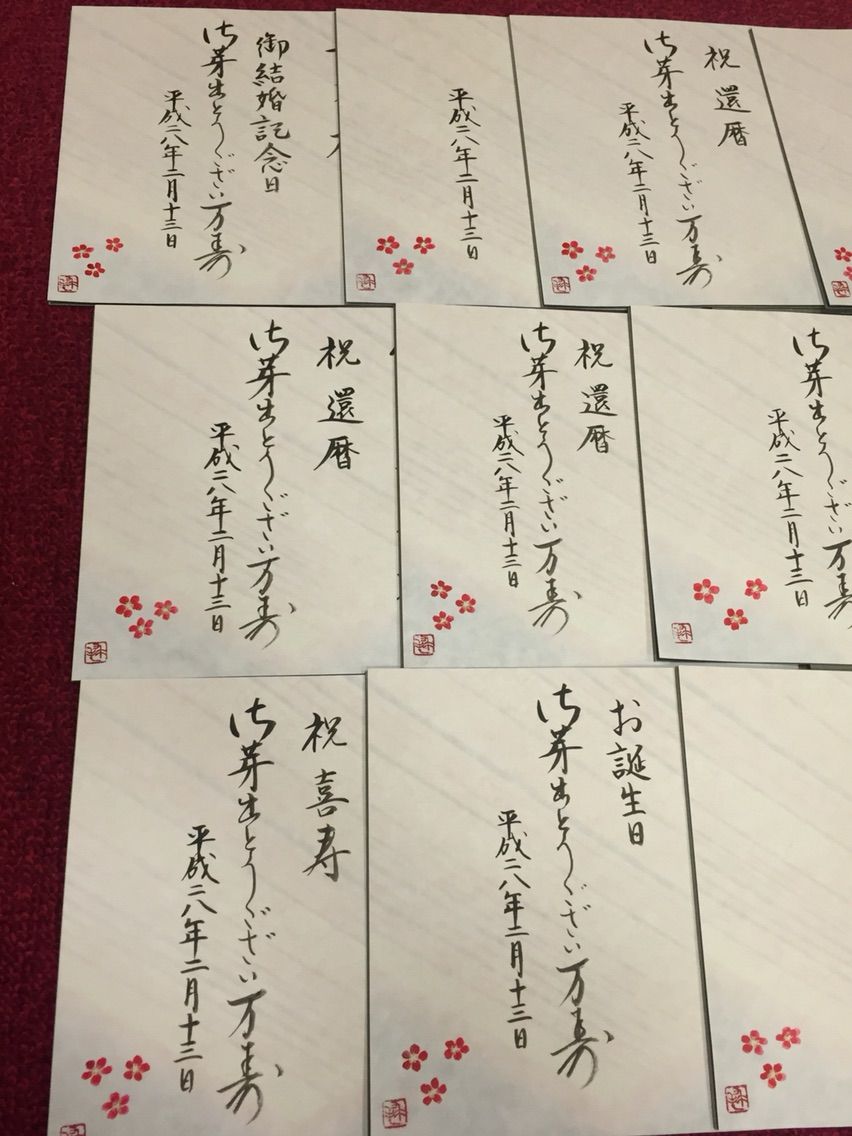 御結婚記念日
御芽出とうござい万寿
平成二八年二月十三日
平成二八年二月十三日
祝 還暦
御芽出とうござい万寿
平成二八年二月十三日
祝 還暦
御芽出とうござい万寿
平成二八年二月十三日
祝 還暦
御芽出とうござい万寿
平成二八年二月十三日
御芽出とうござい万寿
平成二八年二月十三日
祝 喜寿
御芽出とうござい万寿
平成二八年二月十三日
お誕生日
御芽出とうござい万寿
平成二八年二月十三日